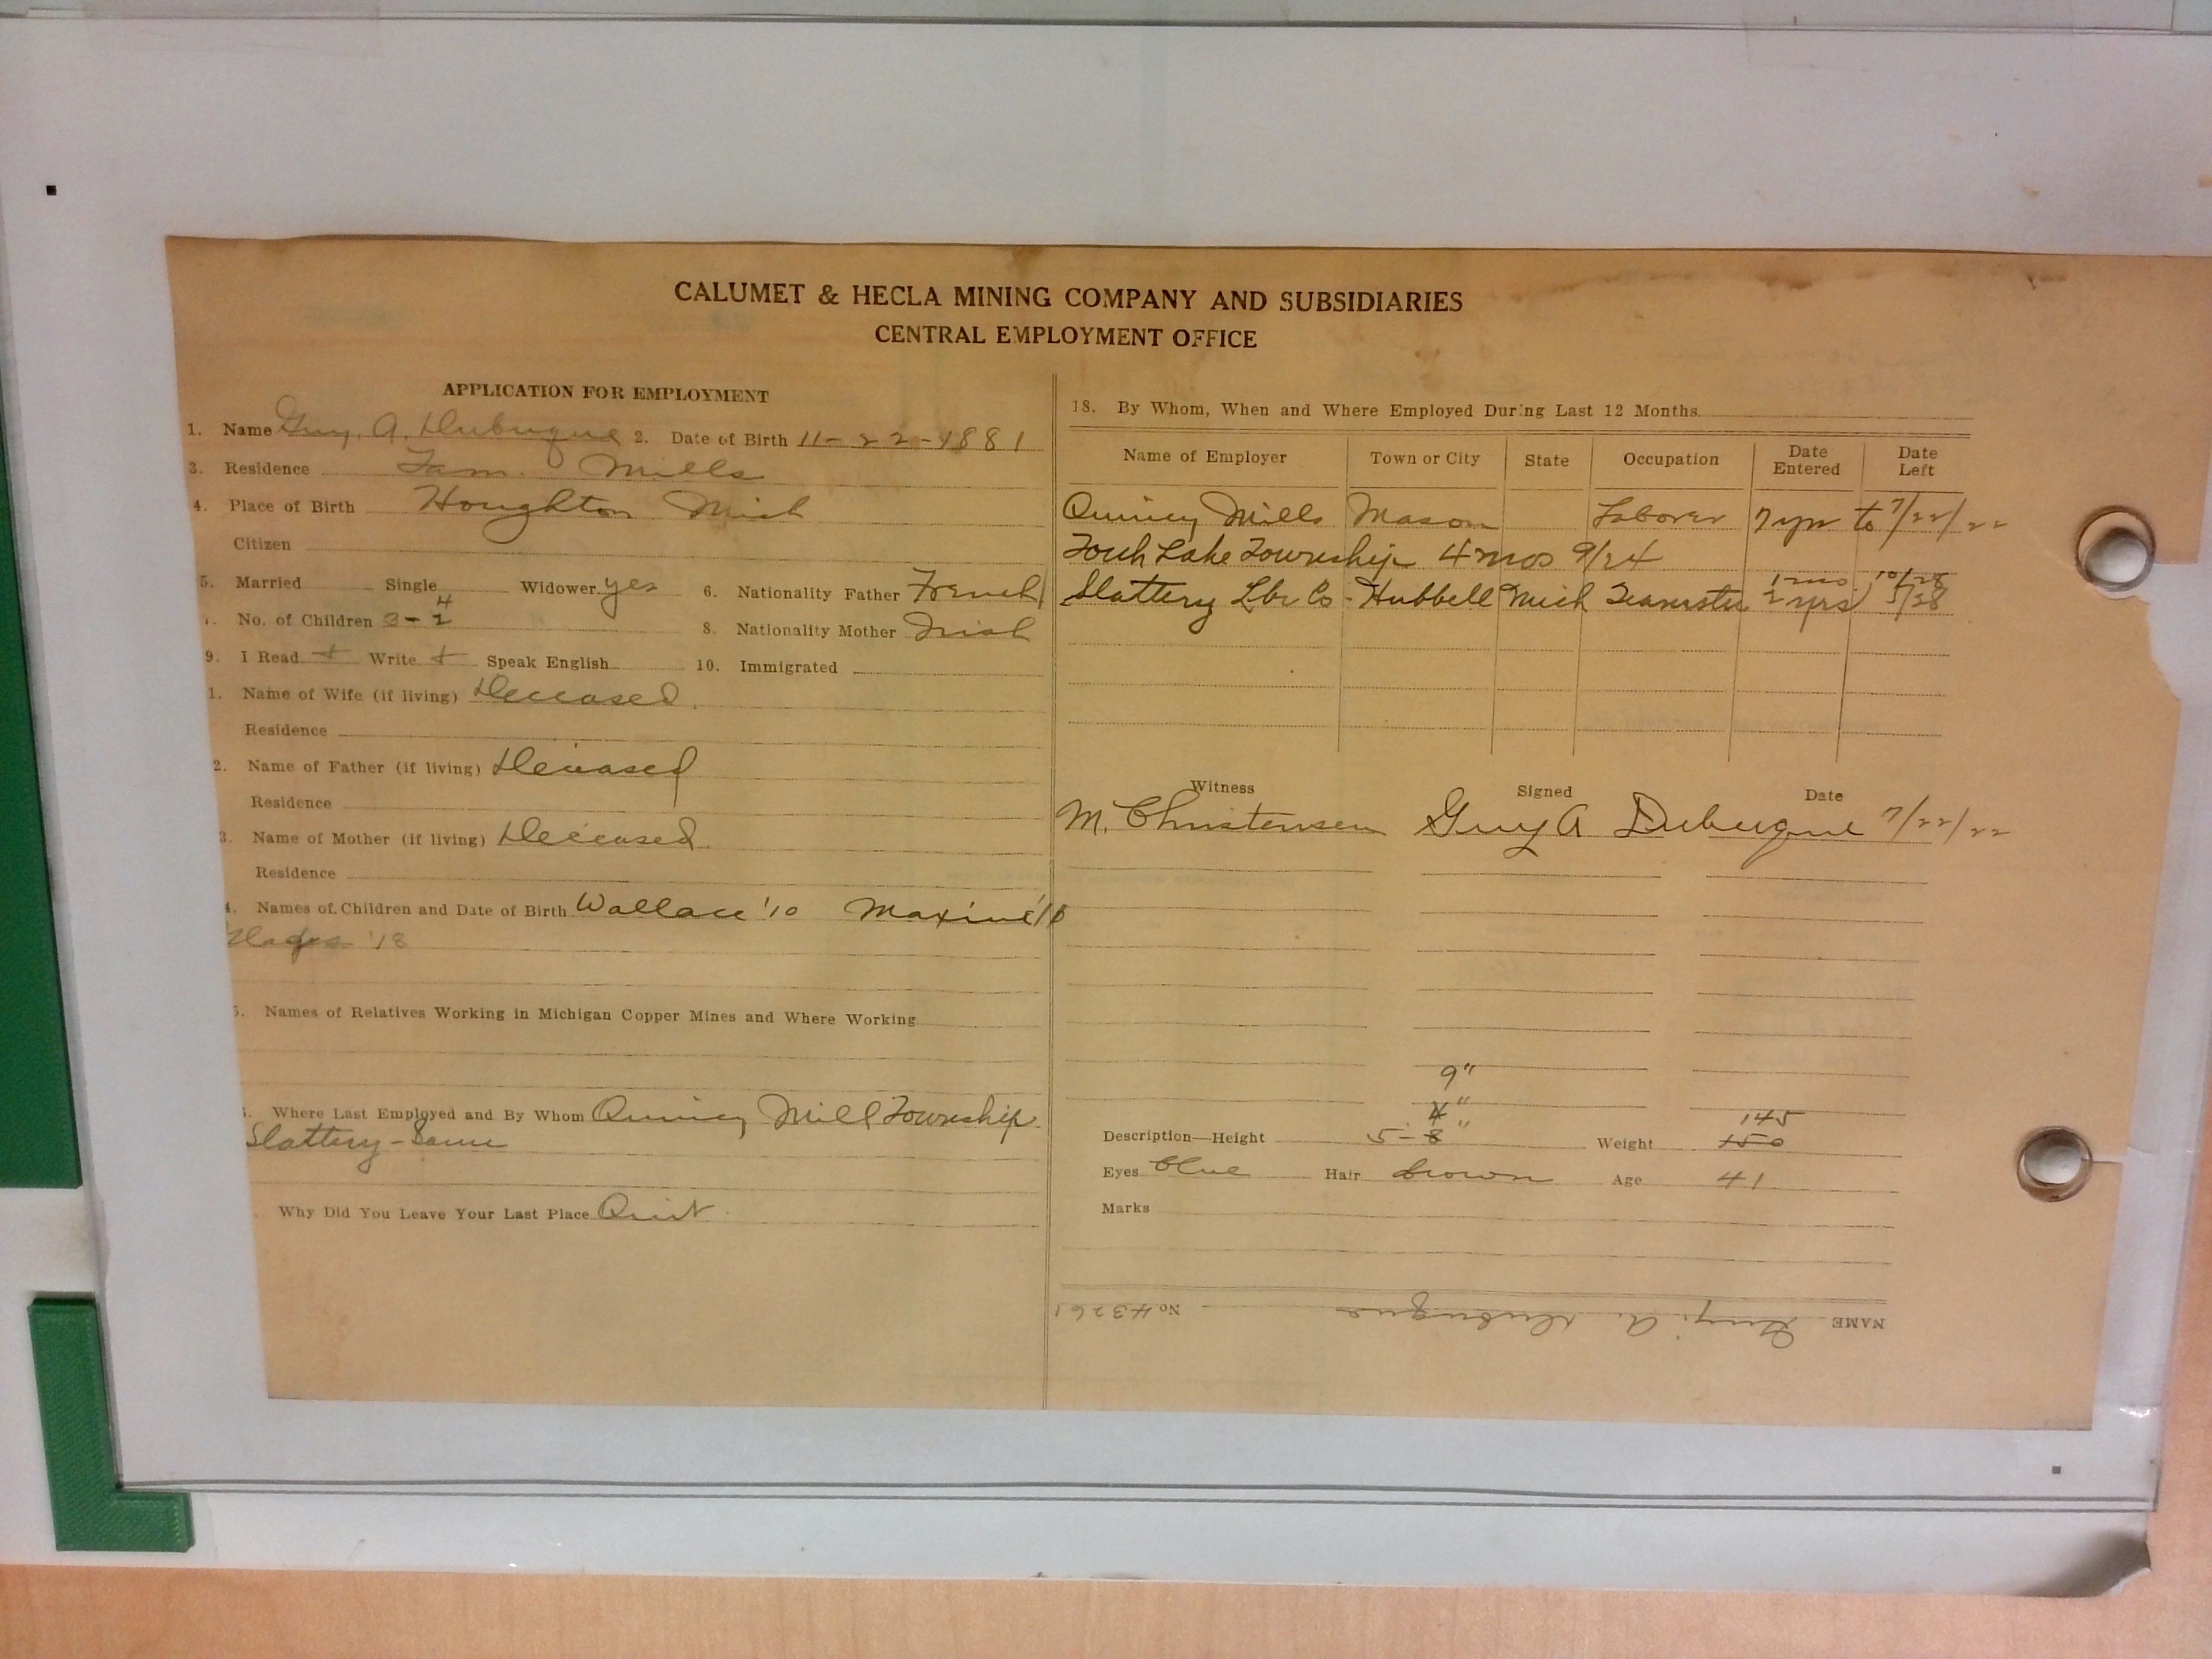 CALUMET & HECLA MINING COMPANY AND SUBSIDIARIES
CENTRAL EMPLOYMENT OFFICE
APPLICATION FOR EMPLOYMENT
1. Name Guy. A. Dubuque 2. Date of Birth 11-22-1881
3. Residence Tam. Mills
4. Place of Birth Houghton Mich
Citizen
5. Married Single Widower yes 6. Nationality Father French
4
7. No. of Children 3-2
8. Nationality Mother Irish
9. I Read + Write + Speak English 10. Immigrated
1. Name of Wife (if living) Deceased.
Residence
2. Name of Father (if living) Deceased
Residence
3. Name of Mother (if living) Deceased.
Residence
4. Names of Children and Date of Birth Wallace '10 Maxine
'18
5. Names of Relatives Working in Michigan Copper Mines and Where Working
Where Last Employed and By Whom Quincy Mill Township
Slattery - Same
Why Did You Leave Your Last Place Quit
18. By Whom, When and Where Employed During Last 12 Months
Name of Employer Town or City State Occupation Date Entered Date Left
Quincy Mills Mason Laborer 7 yrs to 7/22/22
Torch Lake Township 4 mos 9/24
1 mo 10/28
Slattery Lbr Co - Hubbell Mich Teamster 2 yrs 5/28
Witness Signed Date
M. Christensen Guy A Dubuque 7/22/22
9"
4" 145
Description—Height 5-8" Weight 150
Eyes blue Hair brown Age 41
Marks
NAME Guy. A. Dubuque No. 43261